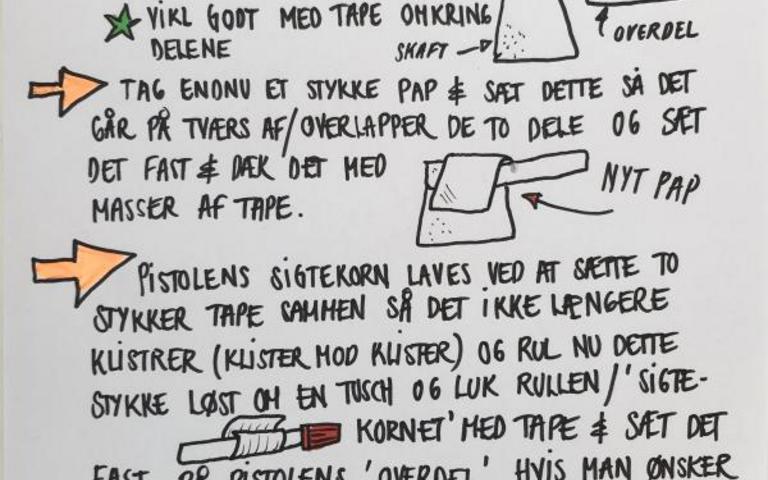 VIKL GODT MED TAPE OMKRING
DELENE
SKAFT
OVERDEL
TAG ENDNU ET STYKKE PAP & SÆT DETTE SÅ DET
GÅR PÅ TVÆRS AF/OVERLAPPER DE TO DELE OG SÆT
DET FAST & DÆK DET MED
MASSER AF TAPE.
NYT PAP
PISTOLENS SIGTEKORN LAVES VED AT SÆTTE TO
STYKKER TAPE SAMMEN SÅ DET IKKE LÆNGERE
KLISTRER (KLISTER MOD KLISTER) OG RUL NU DETTE
STYKKE LØST OM EN TUSCH OG LUK RULLEN/'SIGTE-
KORNET' MED TAPE & SÆT DET
FAST PÅ PISTOLENS 'OVERDEL' HVIS MAN ØNSKER